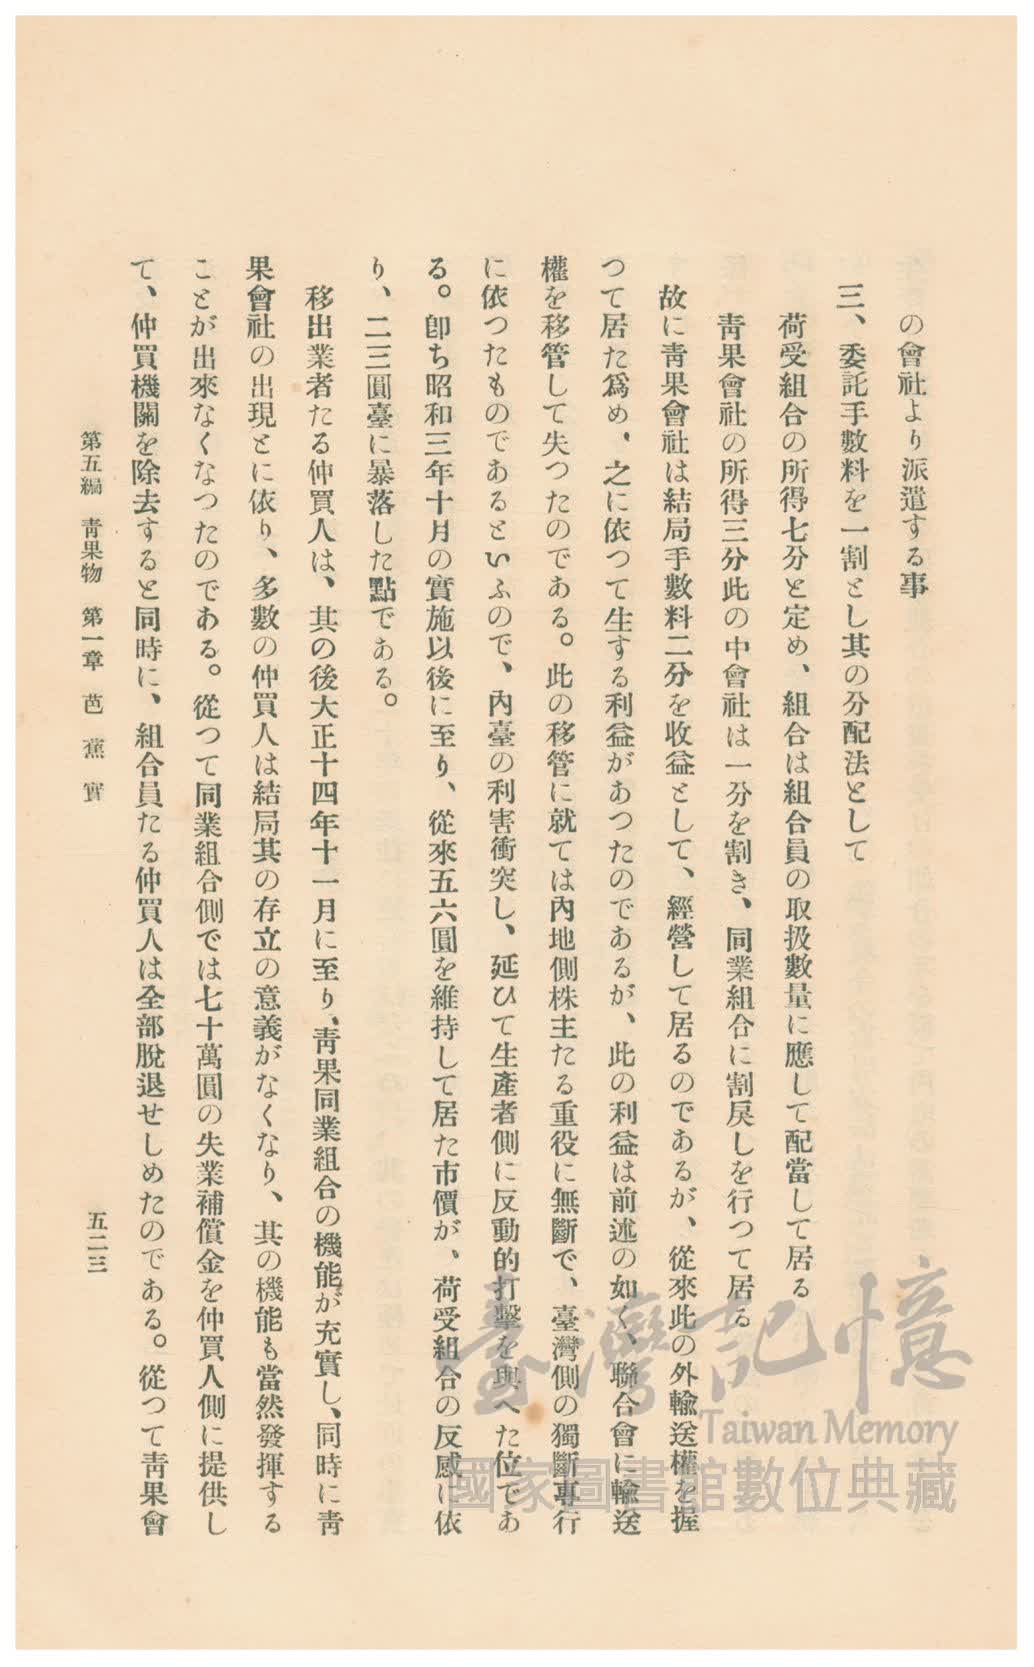 の會社より派遣する事
三、委託手數料を一割とし其の分配法として
荷受組合の所得七分と定め、組合は組合員の取扱數量に應して配當して居る
靑果會社の所得三分此の中會社は一分を割き、同業組合に割戾しを行つて居る
故に靑果會社は結局手數料二分を收益として、經營して居るのであるが、從來此の外輸送權を握
つて居た爲め、之に依つて生する利益があつたのであるが、此の利益は前述の如く、聯合會に輸送
權を移管して失つたのである。此の移管に就ては內地側株主たる重役に無斷で、臺灣側の獨斷專行
に依つたものであるといふので、內臺の利害衝突し、延ひて生產者側に反動的打擊を與へた位であ
る。卽ち昭和三年十月の實施以後に至り、從來五六圓を維持して居た市價が、荷受組合の反感に依
り、二三圓臺に暴落した點である。
移出業者たる仲買人は、其の後大正十四年十一月に至り、靑果同業組合の機能が充實し、同時に靑
果會社の出現とに依り、多數の仲買人は結局其の存立の意義がなくなり、其の機能も當然發揮する
ことが出來なくなつたのである。從つて同業組合側では七十萬圓の失業補償金を仲買人側に提供し
て、仲買機關を除去すると同時に、組合員たる仲買人は全部脫退せしめたのである。從つて靑果會
第五編 靑果物 第一章 芭蕉實
五二三
臺灣記憶
Taiwan Memory
國家圖書館數位典藏